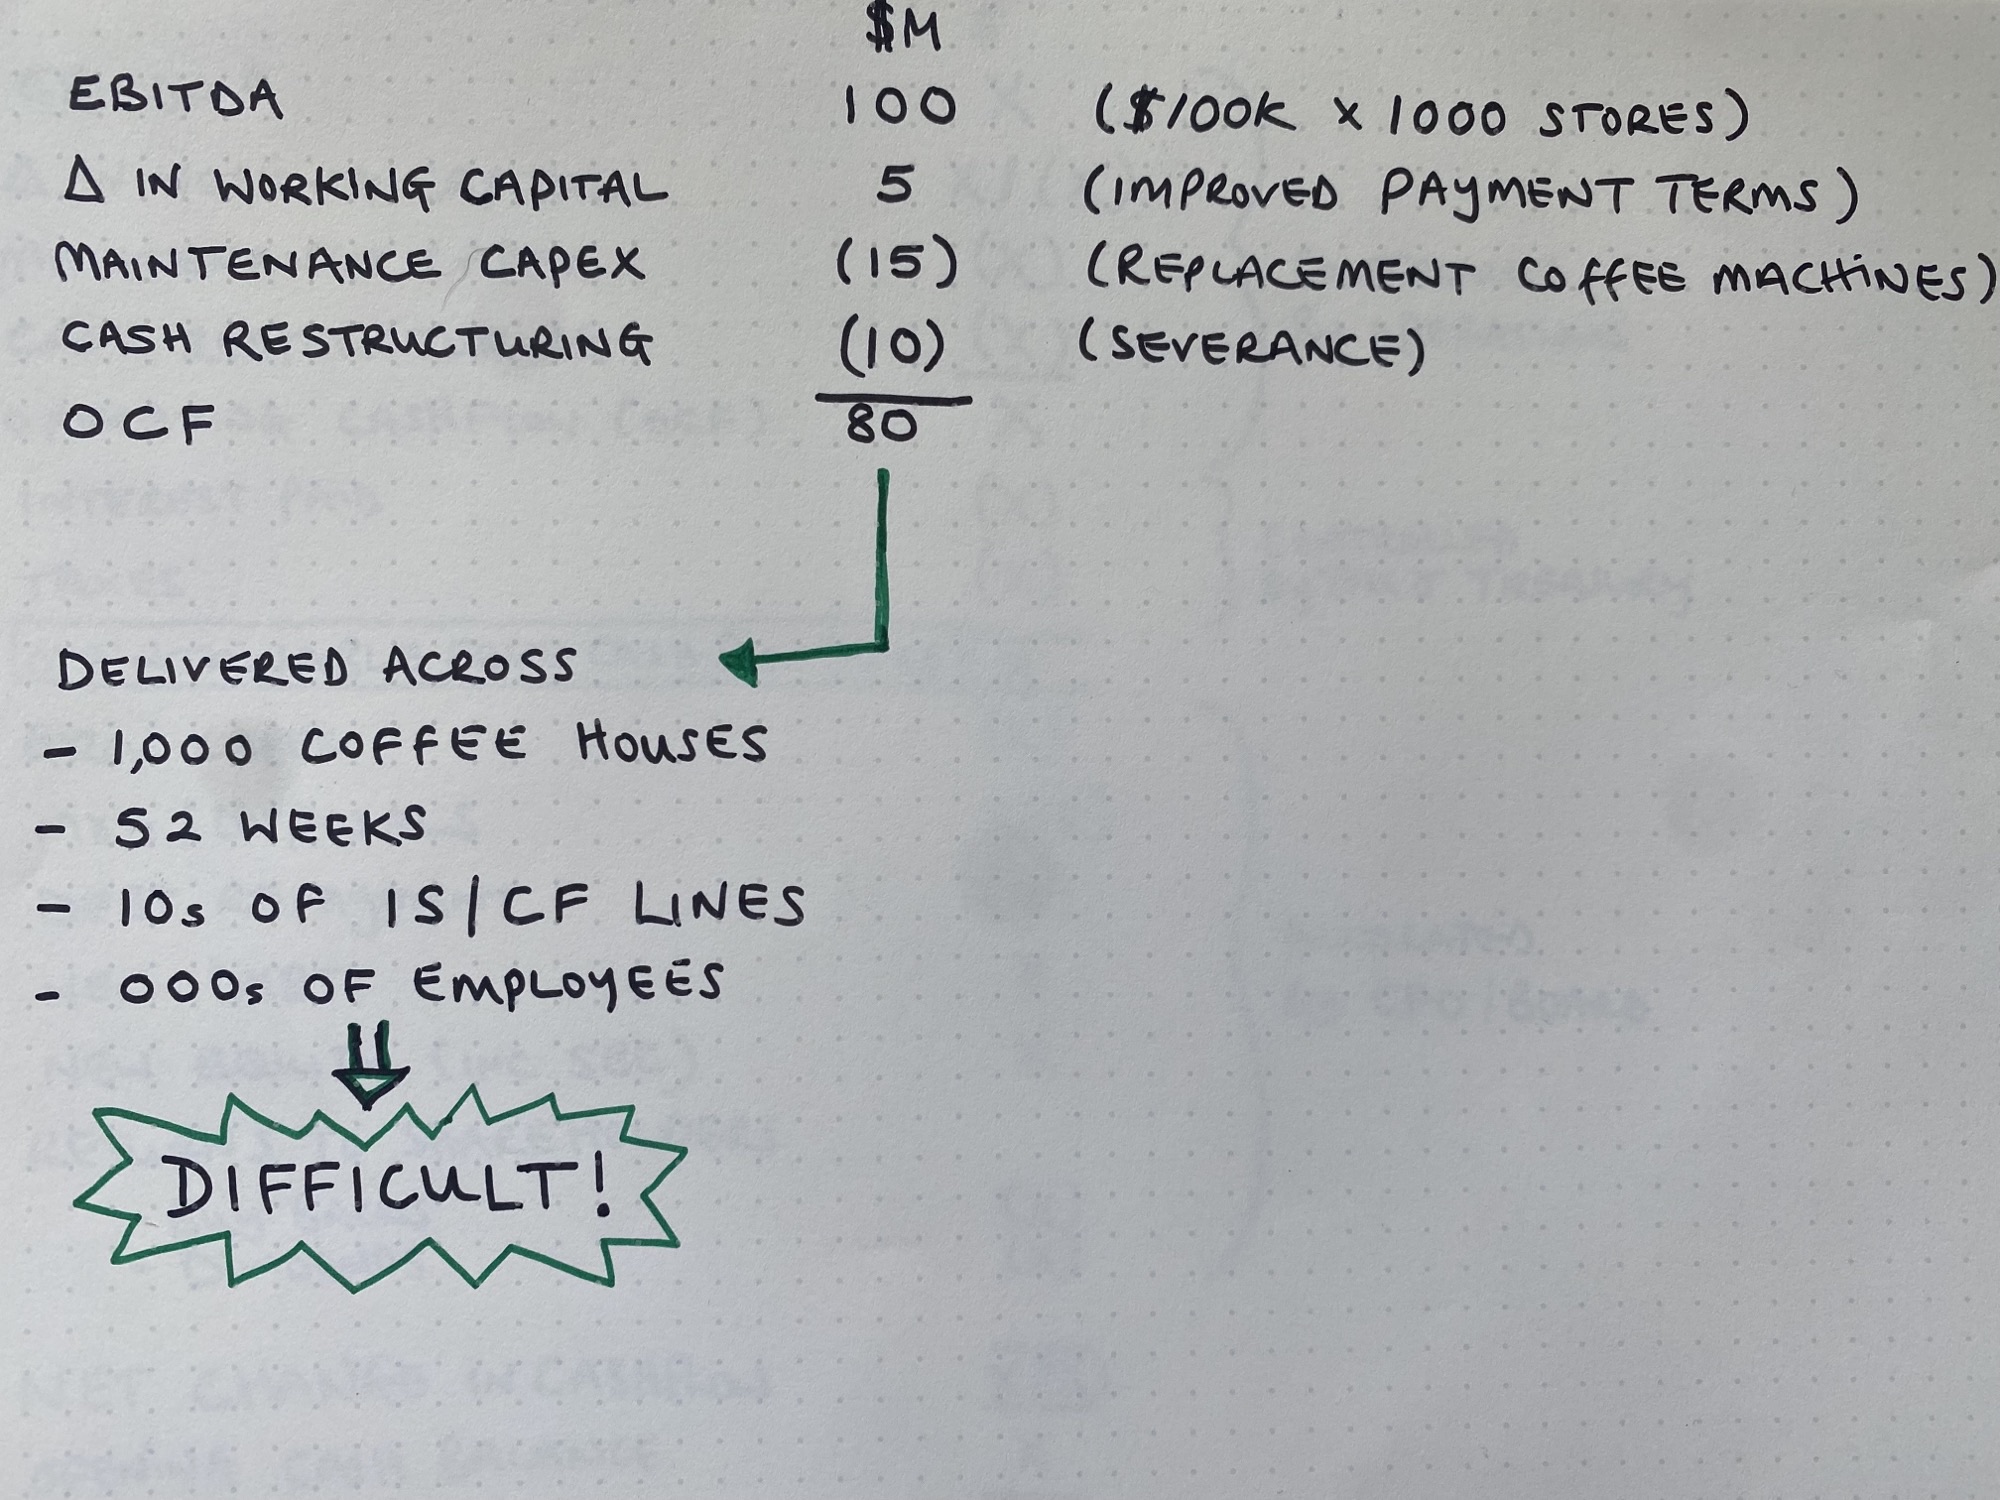 $M
EBITDA 100 ($100K x 1000 STORES)
Δ IN WORKING CAPITAL 5 (IMPROVED PAYMENT TERMS)
MAINTENANCE CAPEX (15) (REPLACEMENT COFFEE MACHINES)
CASH RESTRUCTURING (10) (SEVERANCE)
OCF 80
DELIVERED ACROSS
- 1,000 COFFEE HOUSES
- 52 WEEKS
- 10s OF IS/CF LINES
- 000s OF EMPLOYEES
DIFFICULT!